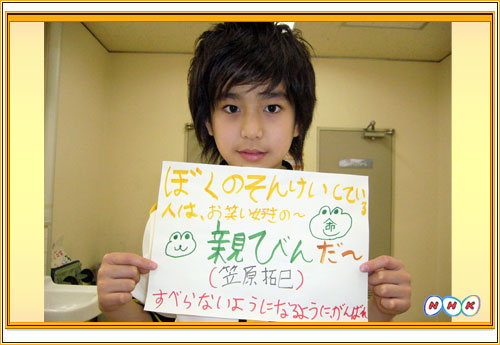 ぼくのそんけいしている
人は、お笑い好きの〜
命
親びんだ〜
(笠原拓巳)
すべらないようになるように、がんばれ
NHK